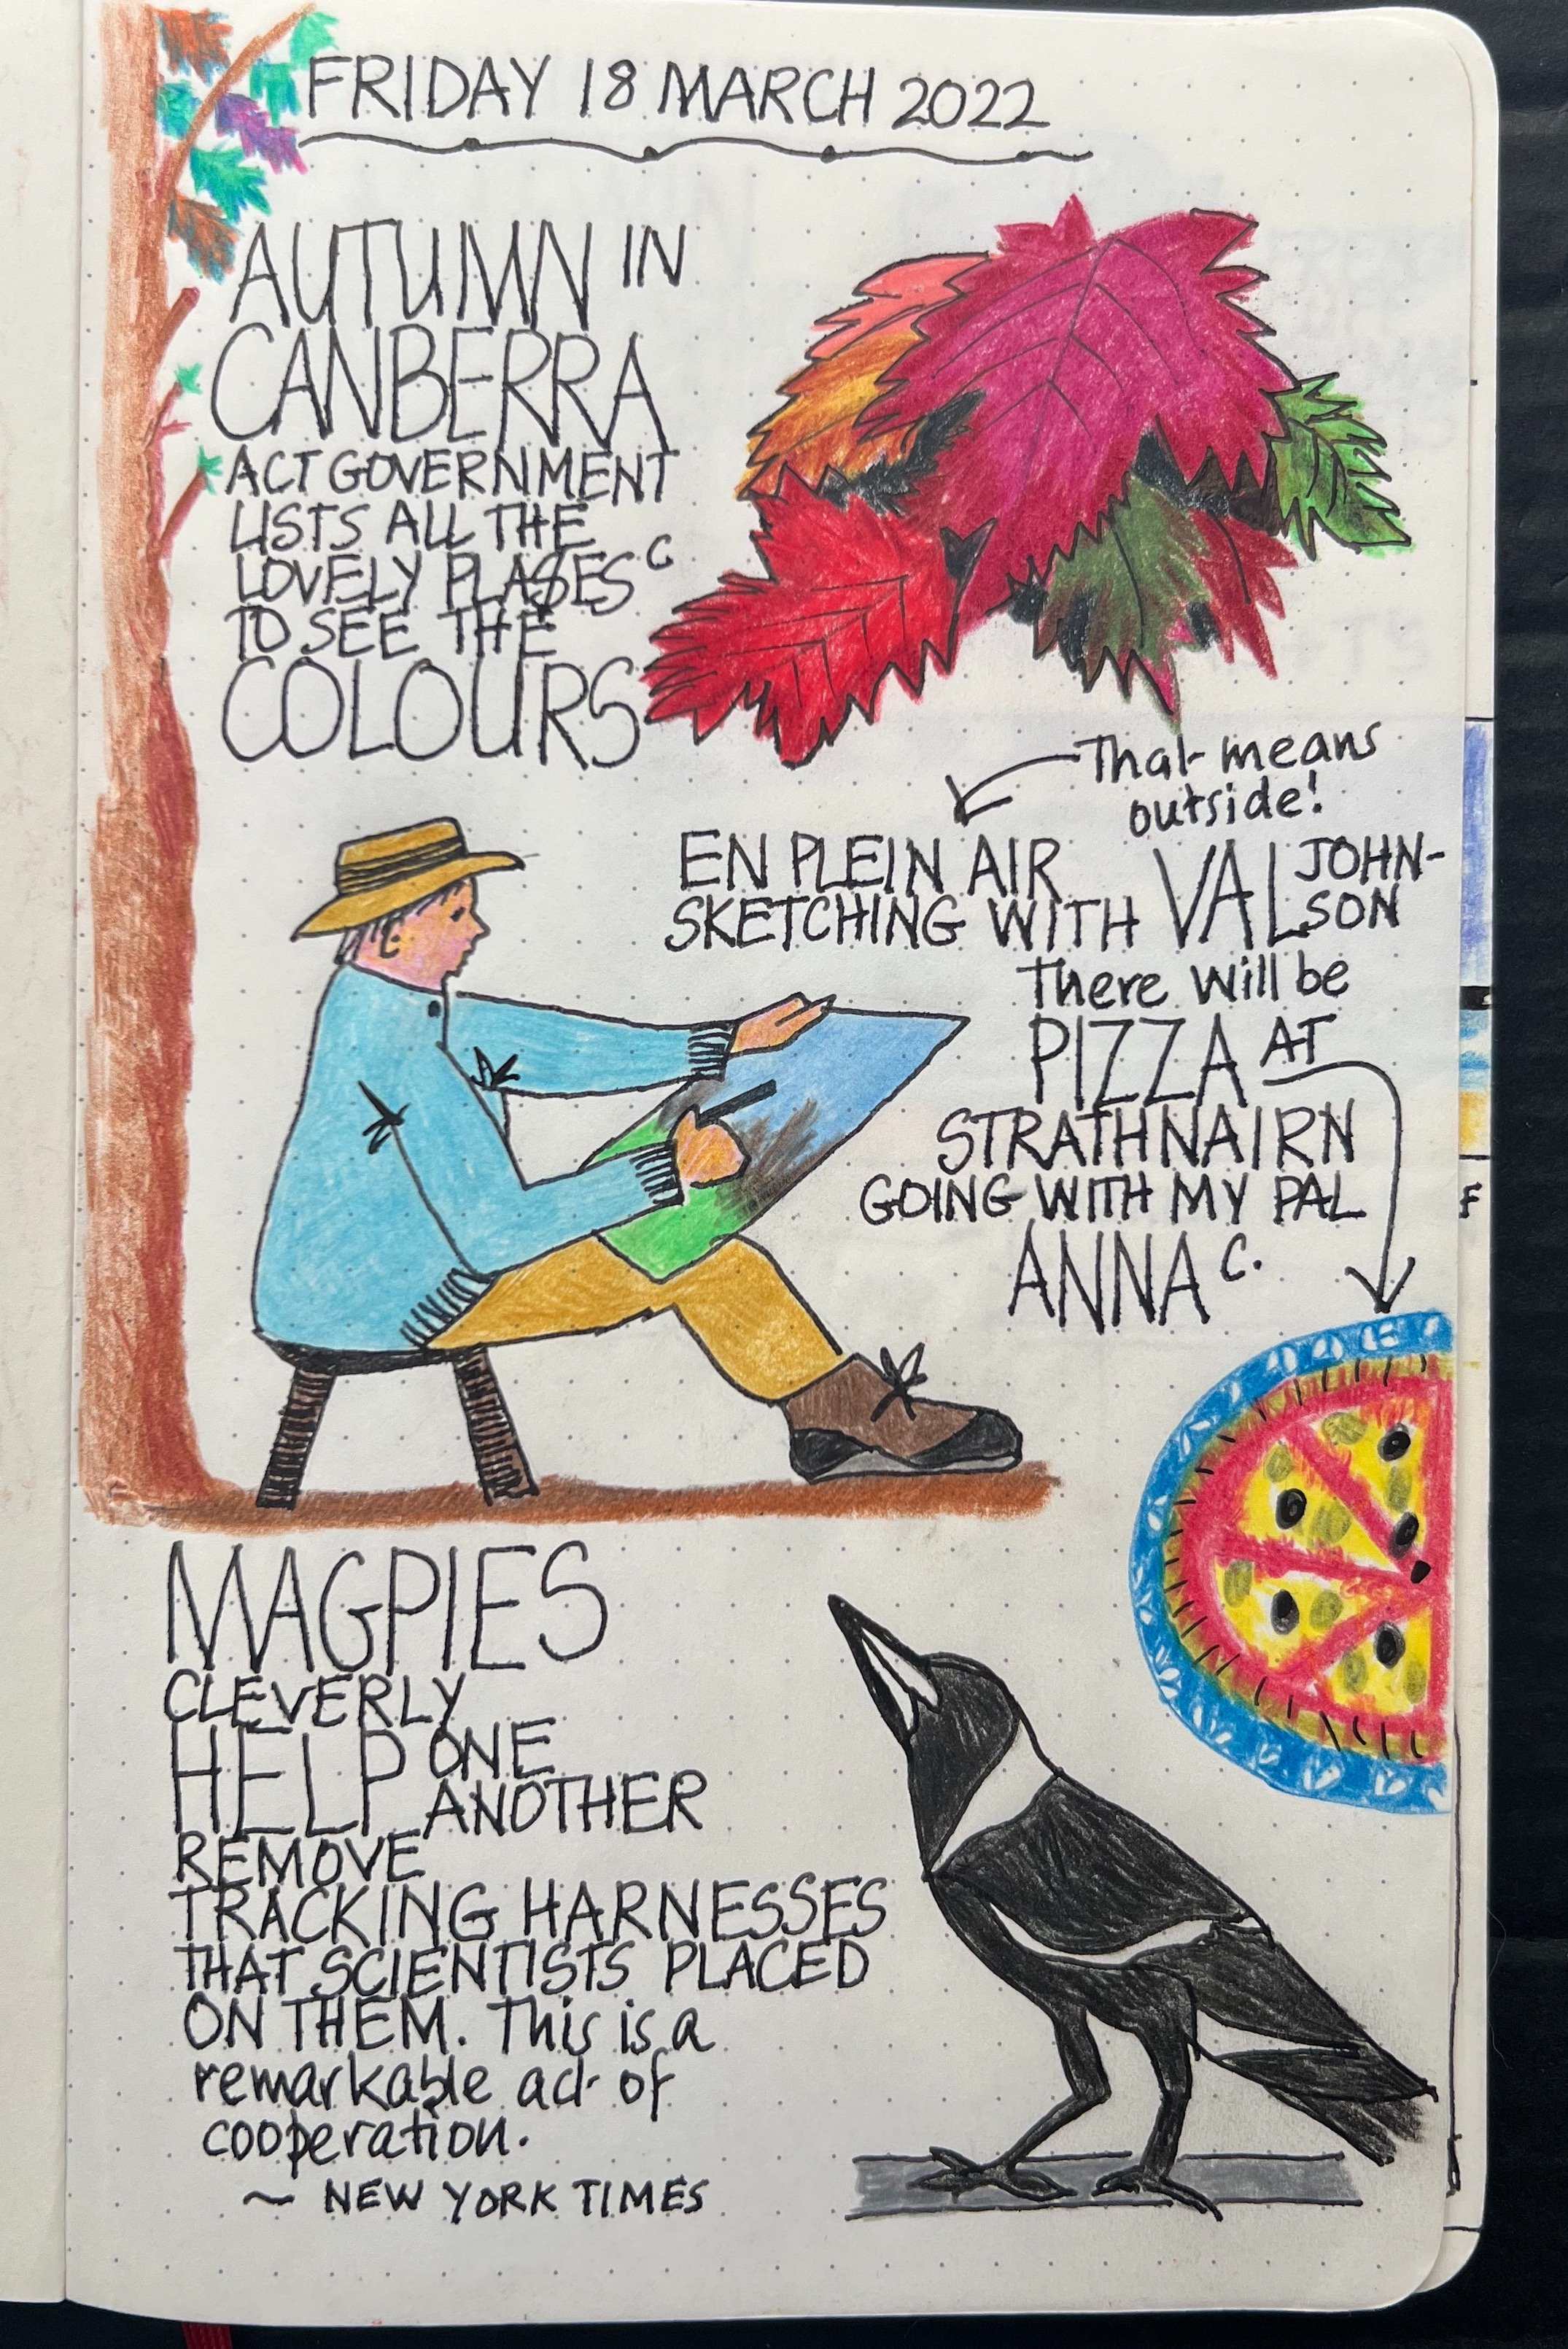 FRIDAY 18 MARCH 2022
AUTUMN IN
CANBERRA
ACT GOVERNMENT
LISTS ALL THE
LOVELY PLASES C
TO SEE THE
COLOURS
That means
outside!
EN PLEIN AIR
SKETCHING WITH VAL JOHN-
SON
There will be
PIZZA AT
STRATHNAIRN
GOING WITH MY PAL
ANNA C.
MAGPIES
CLEVERLY
HELP ONE
ANOTHER
REMOVE
TRACKING HARNESSES
THAT SCIENTISTS PLACED
ON THEM. This is a
remarkable act of
cooperation.
~ NEW YORK TIMES